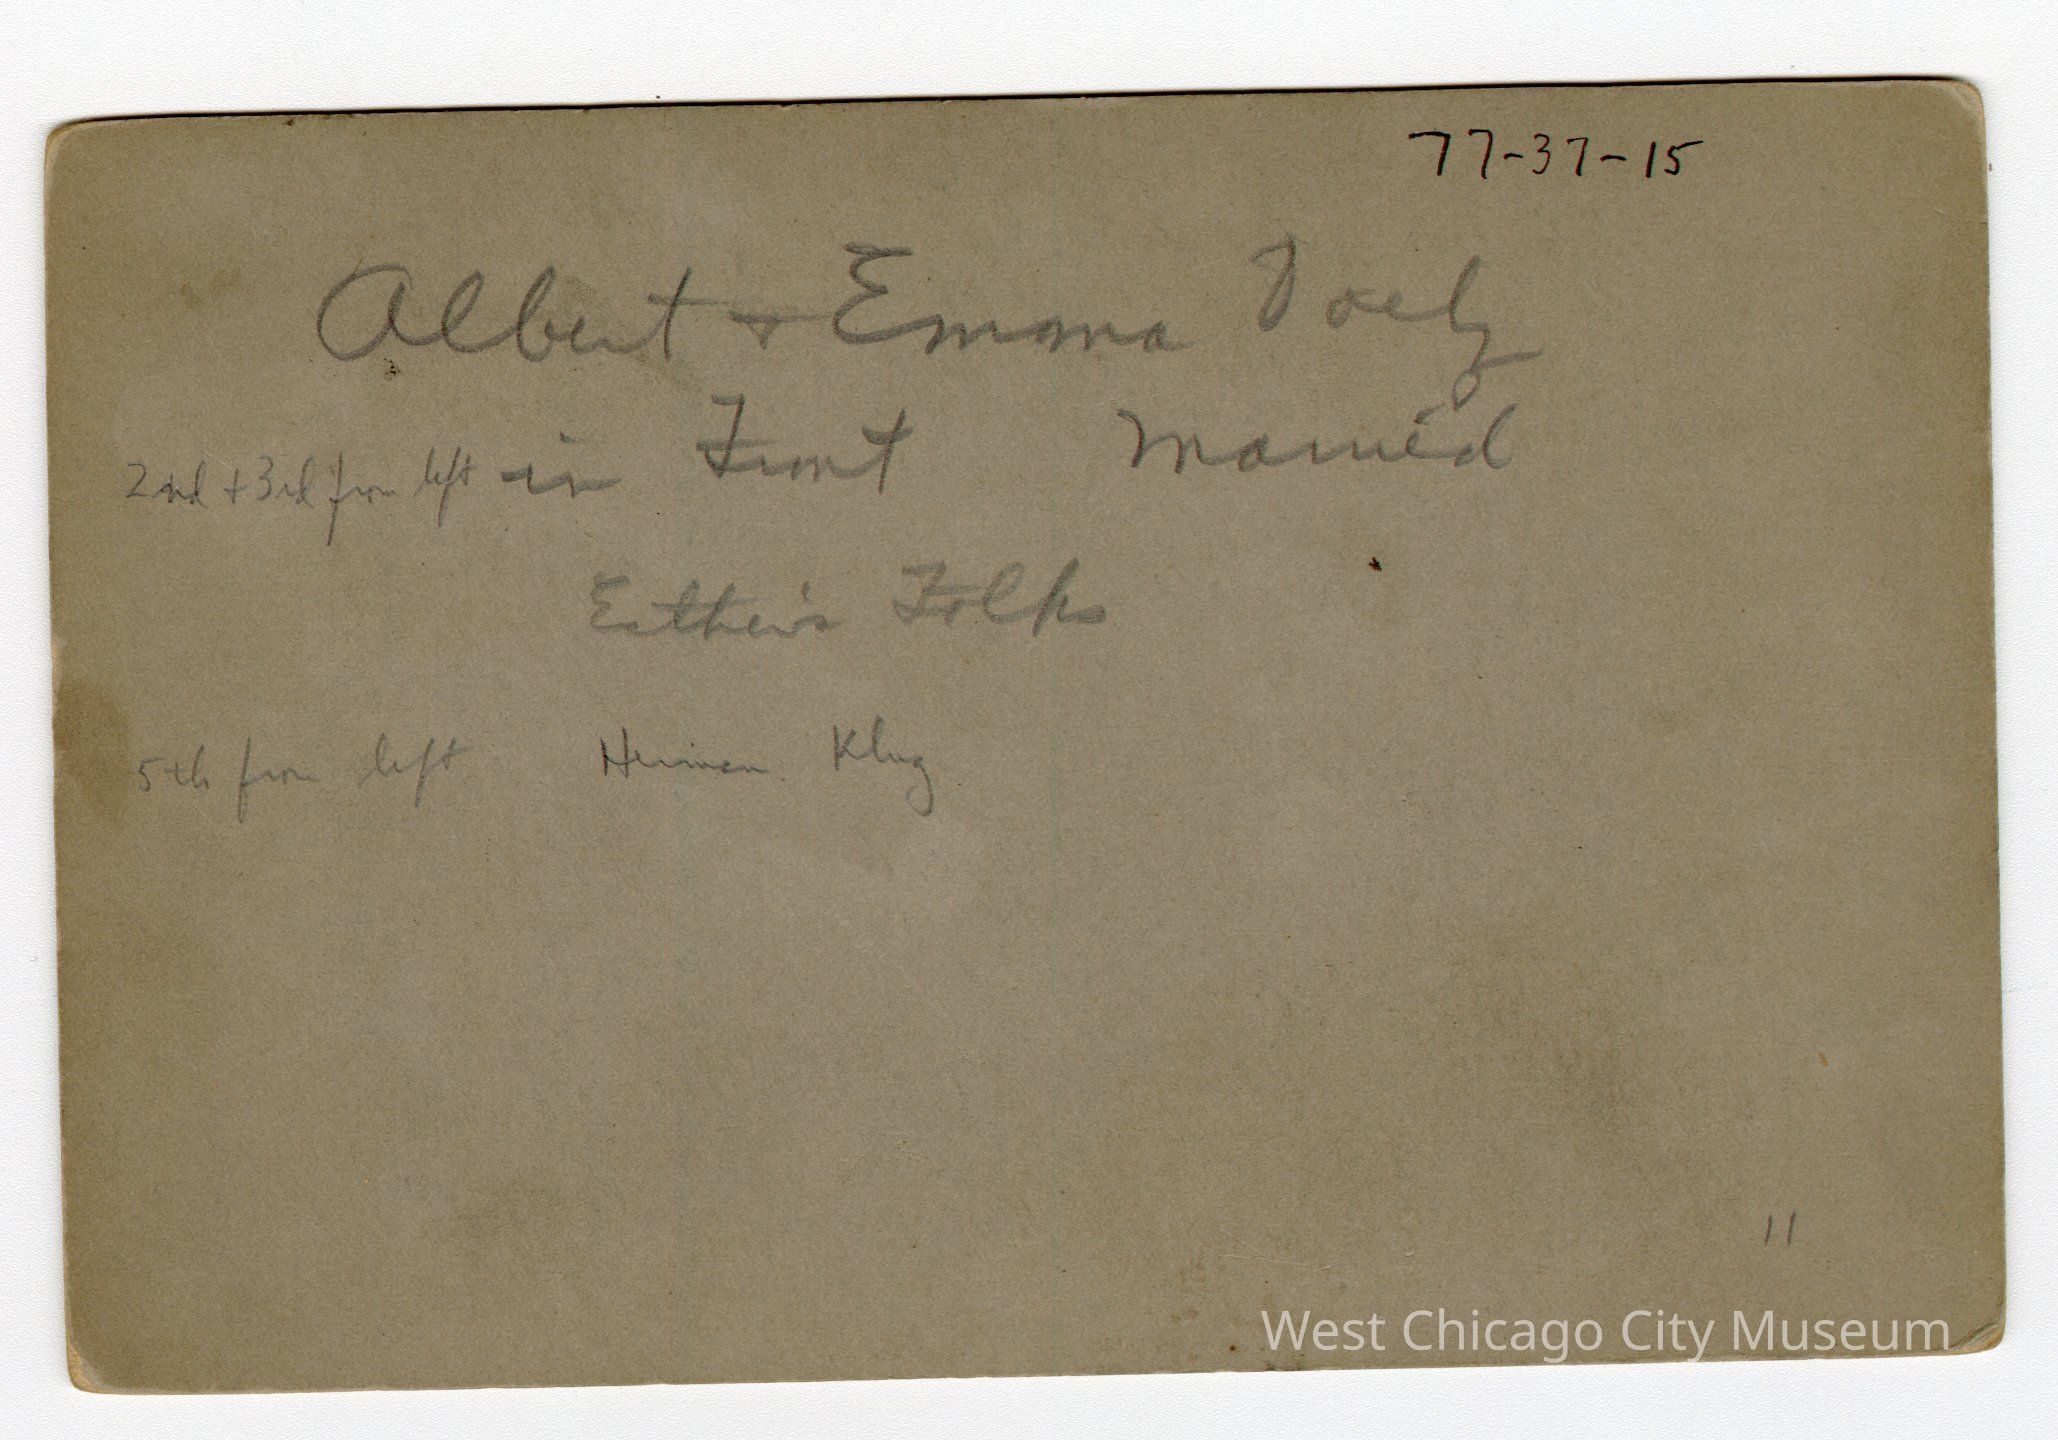 77-37-15
Albert + Emma
2nd + 3rd from left in Front Married
Esther's Folks
5th from left Herman Klug
11
West Chicago City Museum